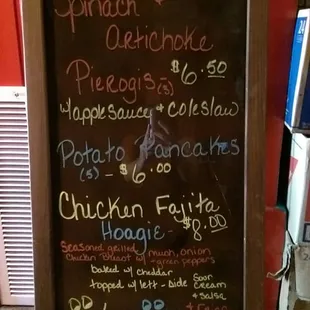 Spinach +
Artichoke
Pierogis (3) $6.50
w/applesauce + coleslaw
Potato Pancakes
(5) - $6.00
Chicken Fajita
Hoagie - $8.00
Seasoned grilled, mush, onion
Chicken Breast w/ + green peppers
baked w/ cheddar
topped w/ lett -
Sour
Cream
+ Salsa